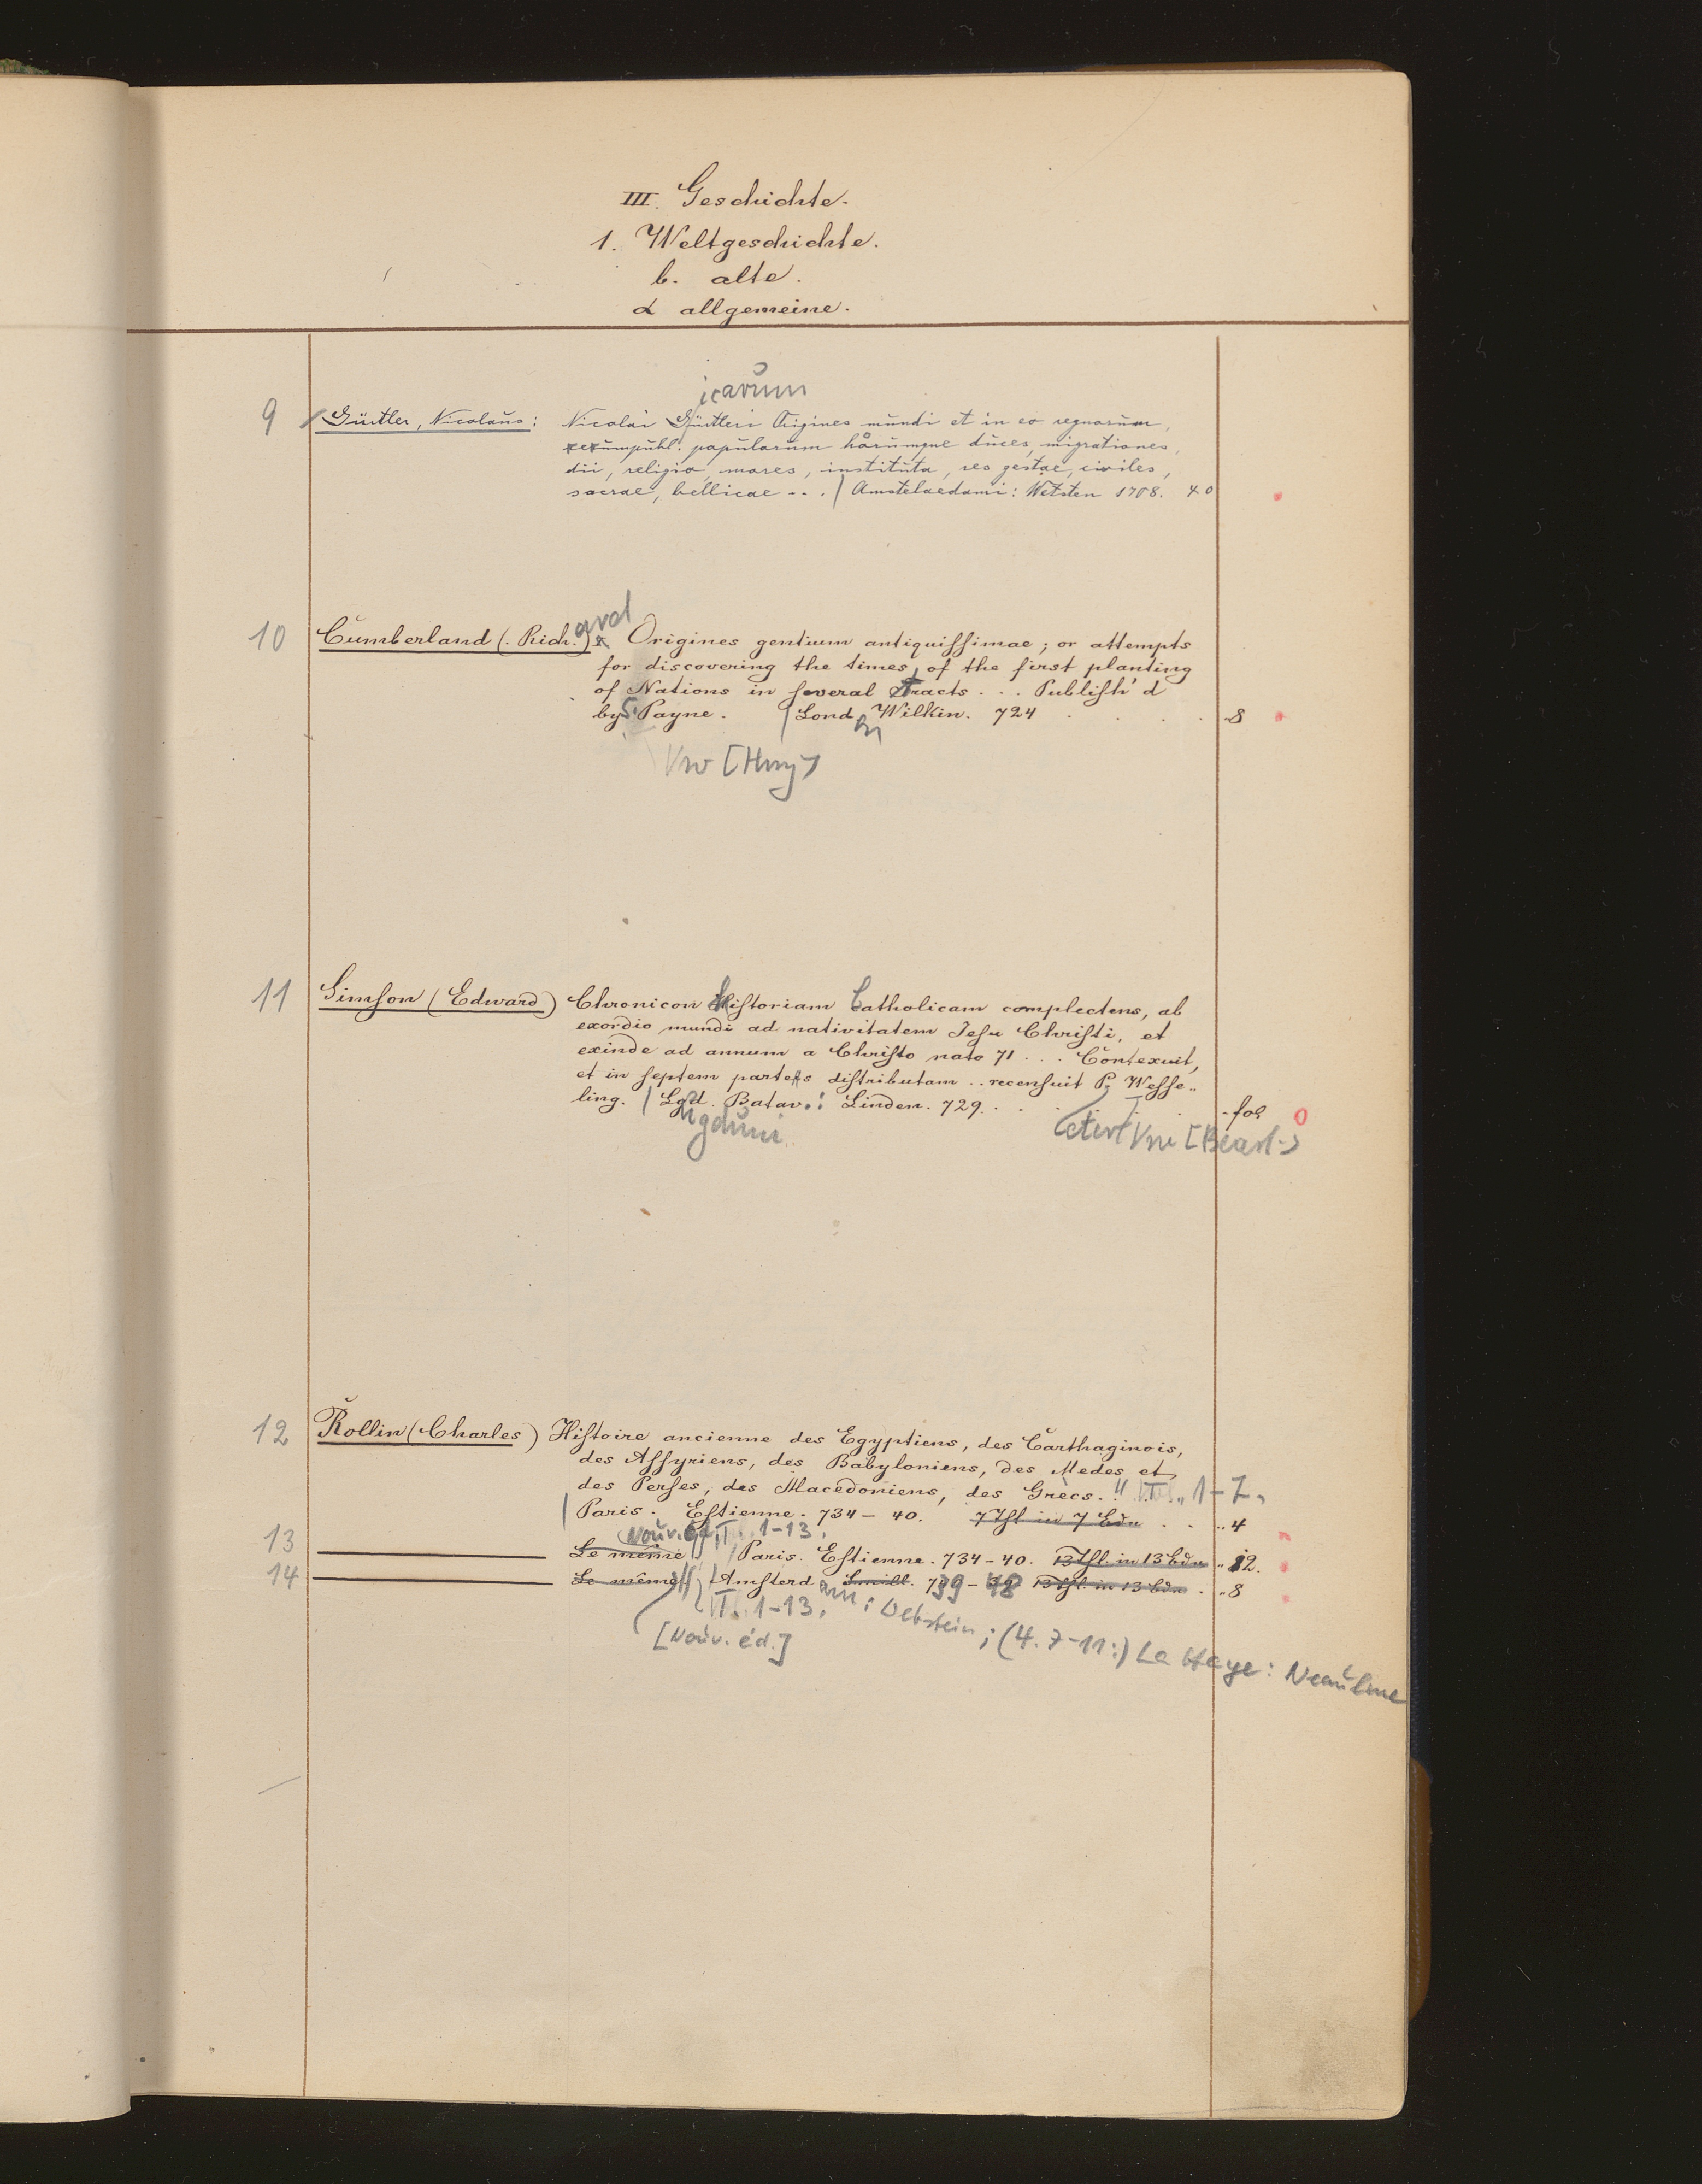 III. Geschichte.
1. Weltgeschichte.
b. alte.
α allgemeine.
icarum
9 Gürtler, Nicolaus: Nicolai Gürtleri Origines mundi et in eo regnorum,
rerumpubl. populorum horumque duces, migrationes,
dii, religio, mores, instituta, res gestae, civiles,
sacrae, bellicae ... / Amstelaedami: Wetsten 1708. 4°
10 Cumberland (. Rich.ard) Origines gentium antiquissimae; or attempts
for discovering the times of the first planting
of Nations in several tracts ... Publish'd
by S. Payne. / Lond. Wilkin. 724 . . . . 8
Vw [Hrsg]
11 Simson (Edward) Chronicon historiam Catholicam complectens, ab
exordio mundi ad nativitatem Jesu Christi, et
exinde ad annum a Christo nato 71 ... Contexuit,
et in septem partes distributam .. recensuit P. Wesse-
ling. / Lgd. Batav.: Linden. 729. . . . . fol 0
ugduni
Vw [Bearb.]
12 Rollin (Charles) Histoire ancienne des Egyptiens, des Carthaginois,
des Assyriens, des Babyloniens, des Medes et
des Perses, des Macedoniens, des Grecs. T. 1-7.
/ Paris. Estienne. 734-40. 7 Thl. in 7 Bdn . . „ 4
Nouv. éd. T. 1-13.
13 ——— Le même / Paris. Estienne. 734-40. 13 Thl. in 13 Bdn „ 12.
14 ——— Le même / Amsterd Smith. 739-48 13 Thl. in 13 Bdn . „ 8
T. 1-13. am: Wetstein; (4. 7-11:) La Haye: Neaulme
[Nouv. éd.]